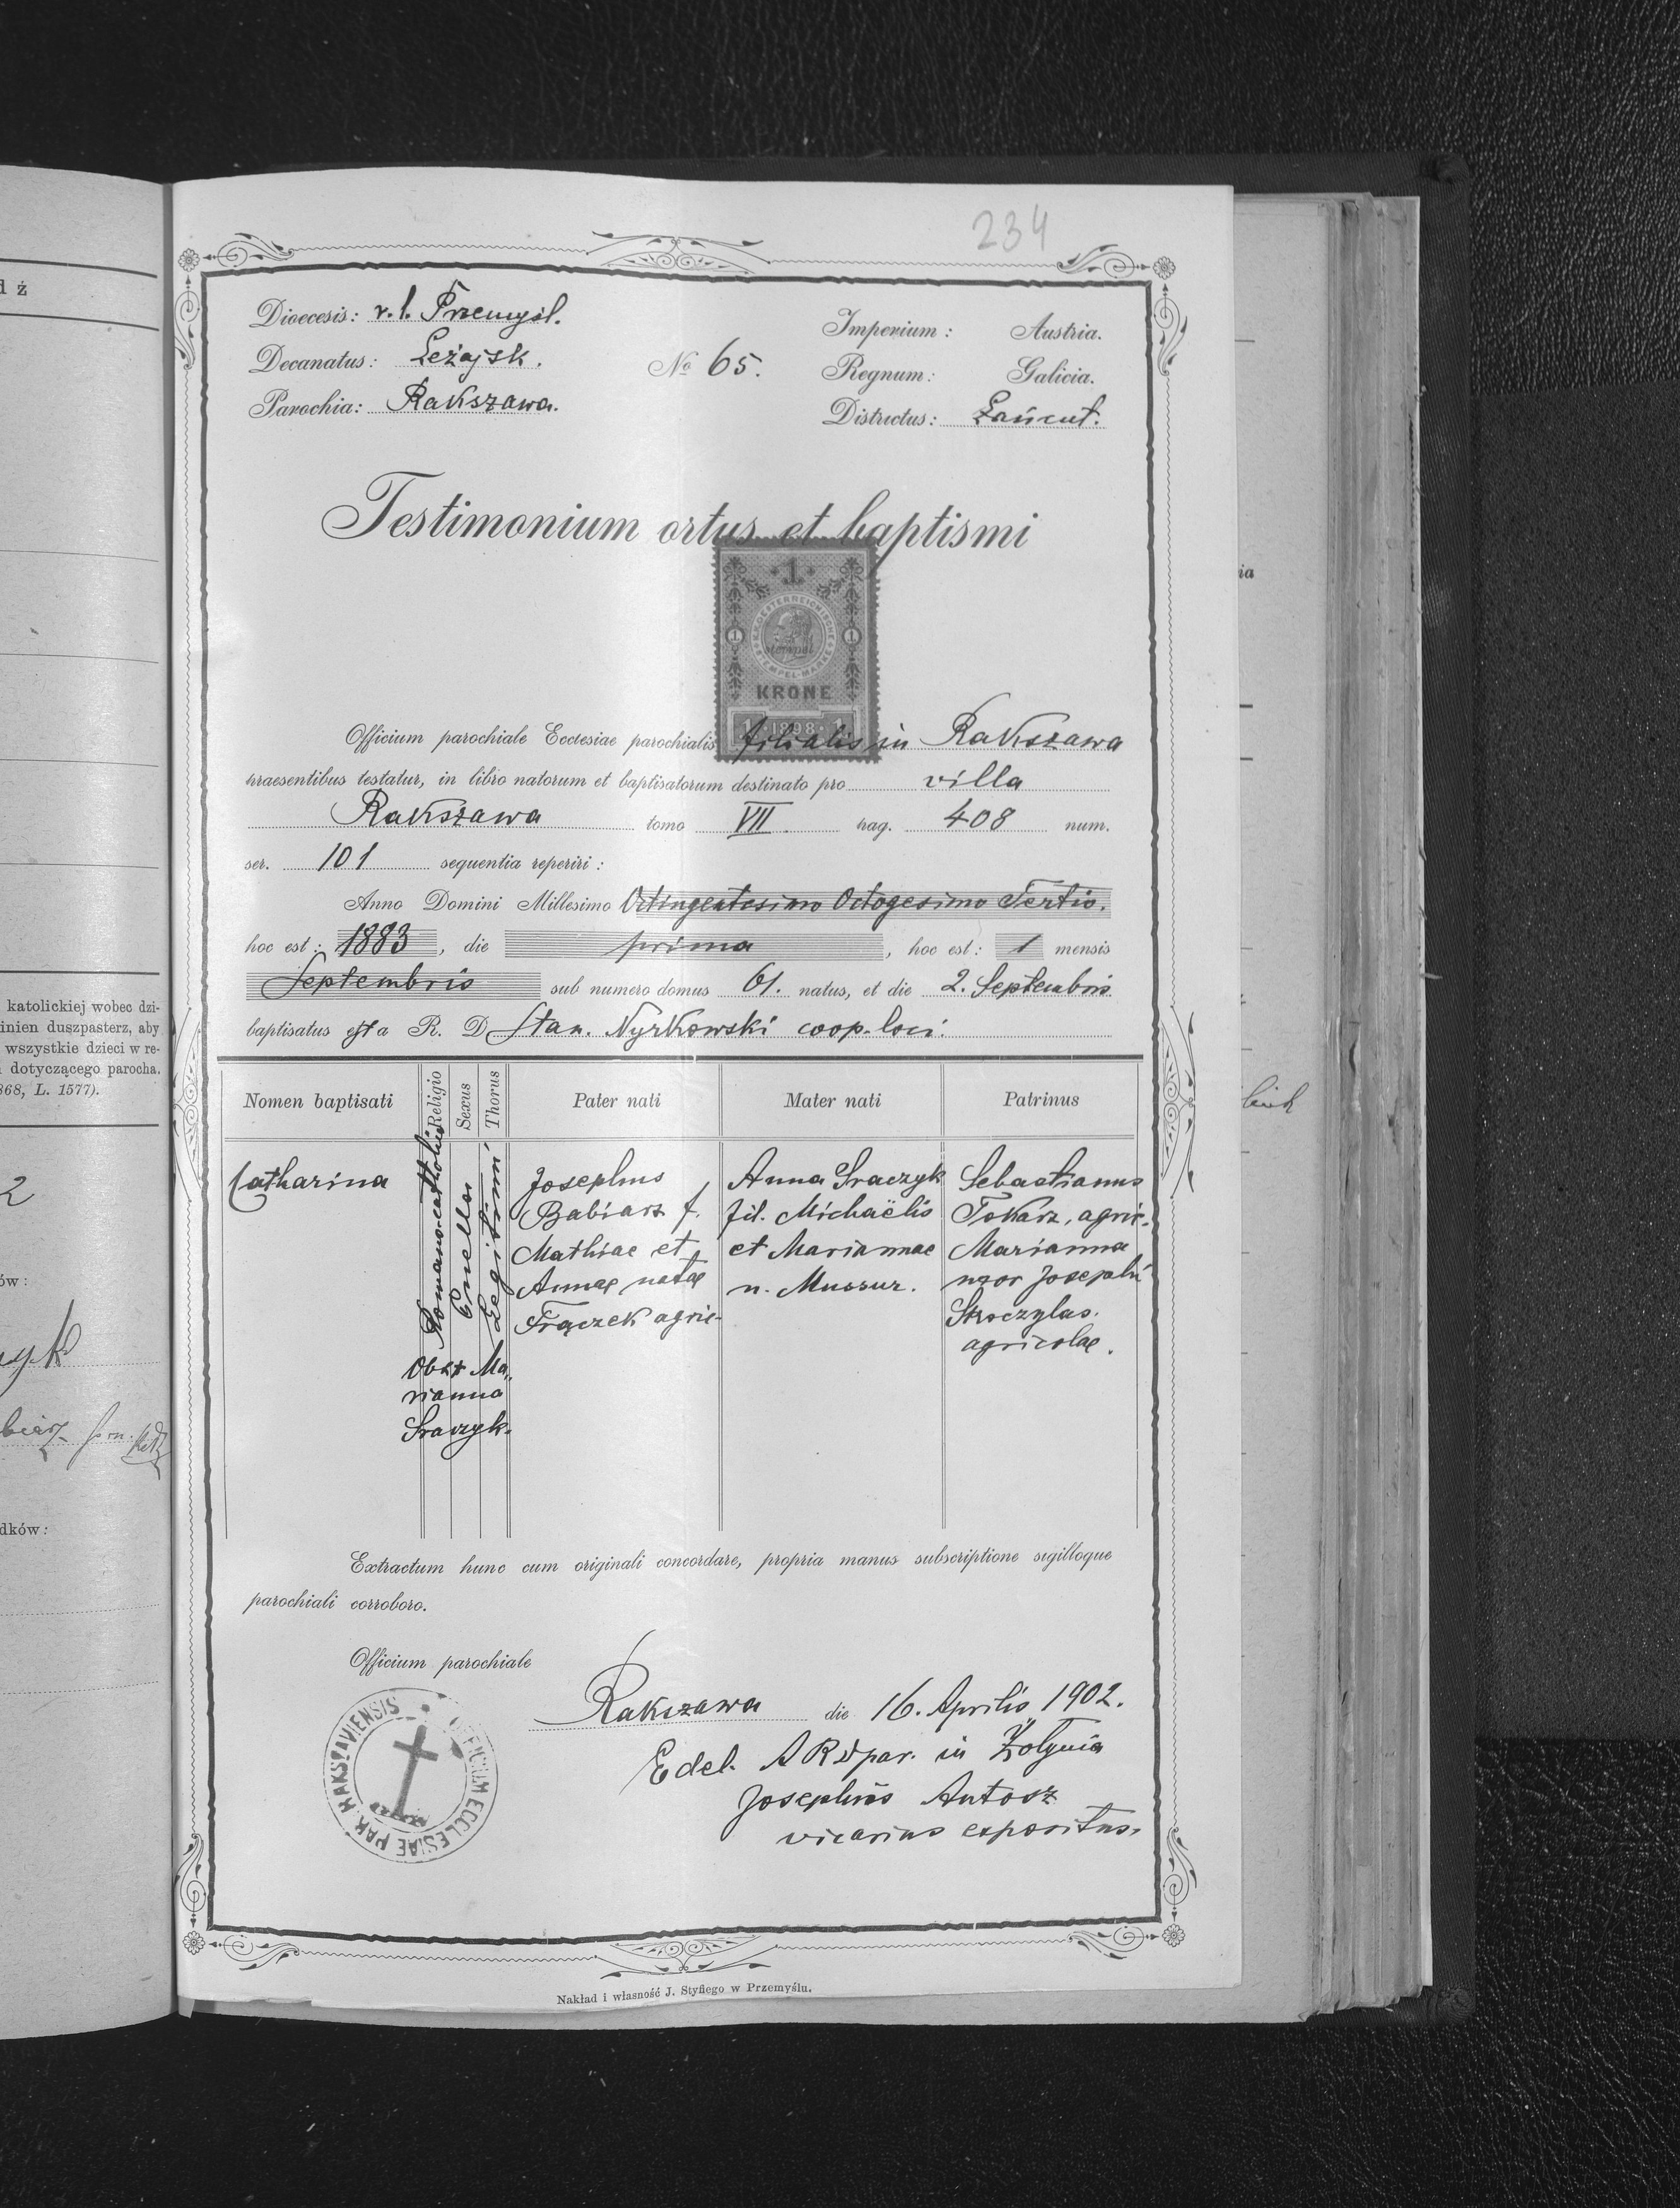 234
d ź
Dioecesis: r. l. Przemyśl.
Decanatus: Leżajsk.
Parochia: Rakszawa.
№ 65.
Imperium: Austria.
Regnum: Galicia.
Districtus: Łańcut.
Testimonium ortus et baptismi
1
K.K. OESTERREICHISCHE STEMPEL-MARKE
1 1
stempel
KRONE
1 1898 1
Officium parochiale Ecclesiae parochialis filialis in Rakszawa
praesentibus testatur, in libro natorum et baptisatorum destinato pro villa
Rakszawa tomo VII. pag. 408 num.
ser. 101 sequentia reperiri:
Anno Domini Millesimo Octingentesimo Octogesimo Tertio.
hoc est: 1883, die prima, hoc est: 1 mensis
Septembris sub numero domus 61. natus, et die 2. Septembris
baptisatus est a R. D. Stan. Nyrkowski coop. loci.
Nomen baptisati
Religio
Sexus
Thorus
Pater nati
Mater nati
Patrinus
Catharina
Romano-catholica
Puella
Legitimi
Obst. Ma„
rianna
Sraczyk.
Josephus
Babiarz f.
Mathiae et
Annae natae
Frączek agric.
Anna Sraczyk
fil. Michaëlis
et Mariannae
n. Mussur.
Sebastianus
Tokarz, agric.
Marianna
uxor Josephi
Skoczylas.
agricolae.
Extractum hunc cum originali concordare, propria manus subscriptione sigilloque
parochiali corroboro.
Officium parochiale
Rakszawa die 16. Aprilis 1902.
Edel. A R D par. in Żołynia
Josephus Antosz
vicarius expositus.
OFFICIUM ECCLESIAE PAR. RAKSZAVIENSIS
Nakład i własność J. Styfiego w Przemyślu.
katolickiej wobec dzi-
inien duszpasterz, aby
wszystkie dzieci w re-
dotyczącego parocha.
868, L. 1577).
2
ów:
dków:
ia